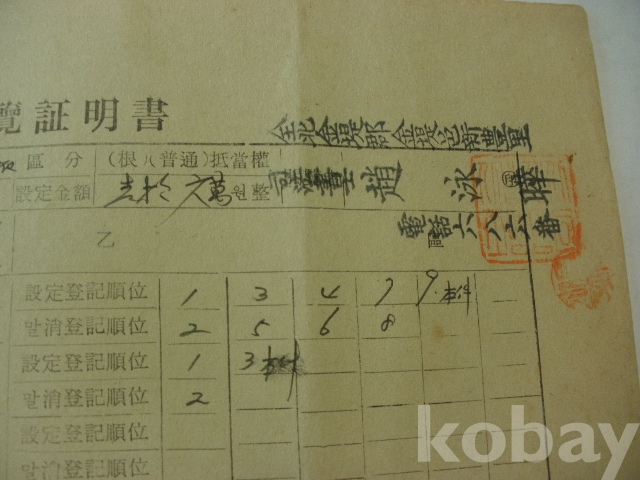 覽証明書
全北金堤郡金堤邑新豊里
司法書士 趙泳
電話六八六番
區分 (根八普通)抵當權
設定金額 원整
乙
設定登記順位 1 3 4 7 9.本件
말消登記順位 2 5 6 8
設定登記順位 1 3本件
말消登記順位 2
設定登記順位
말消登記順位
kobay